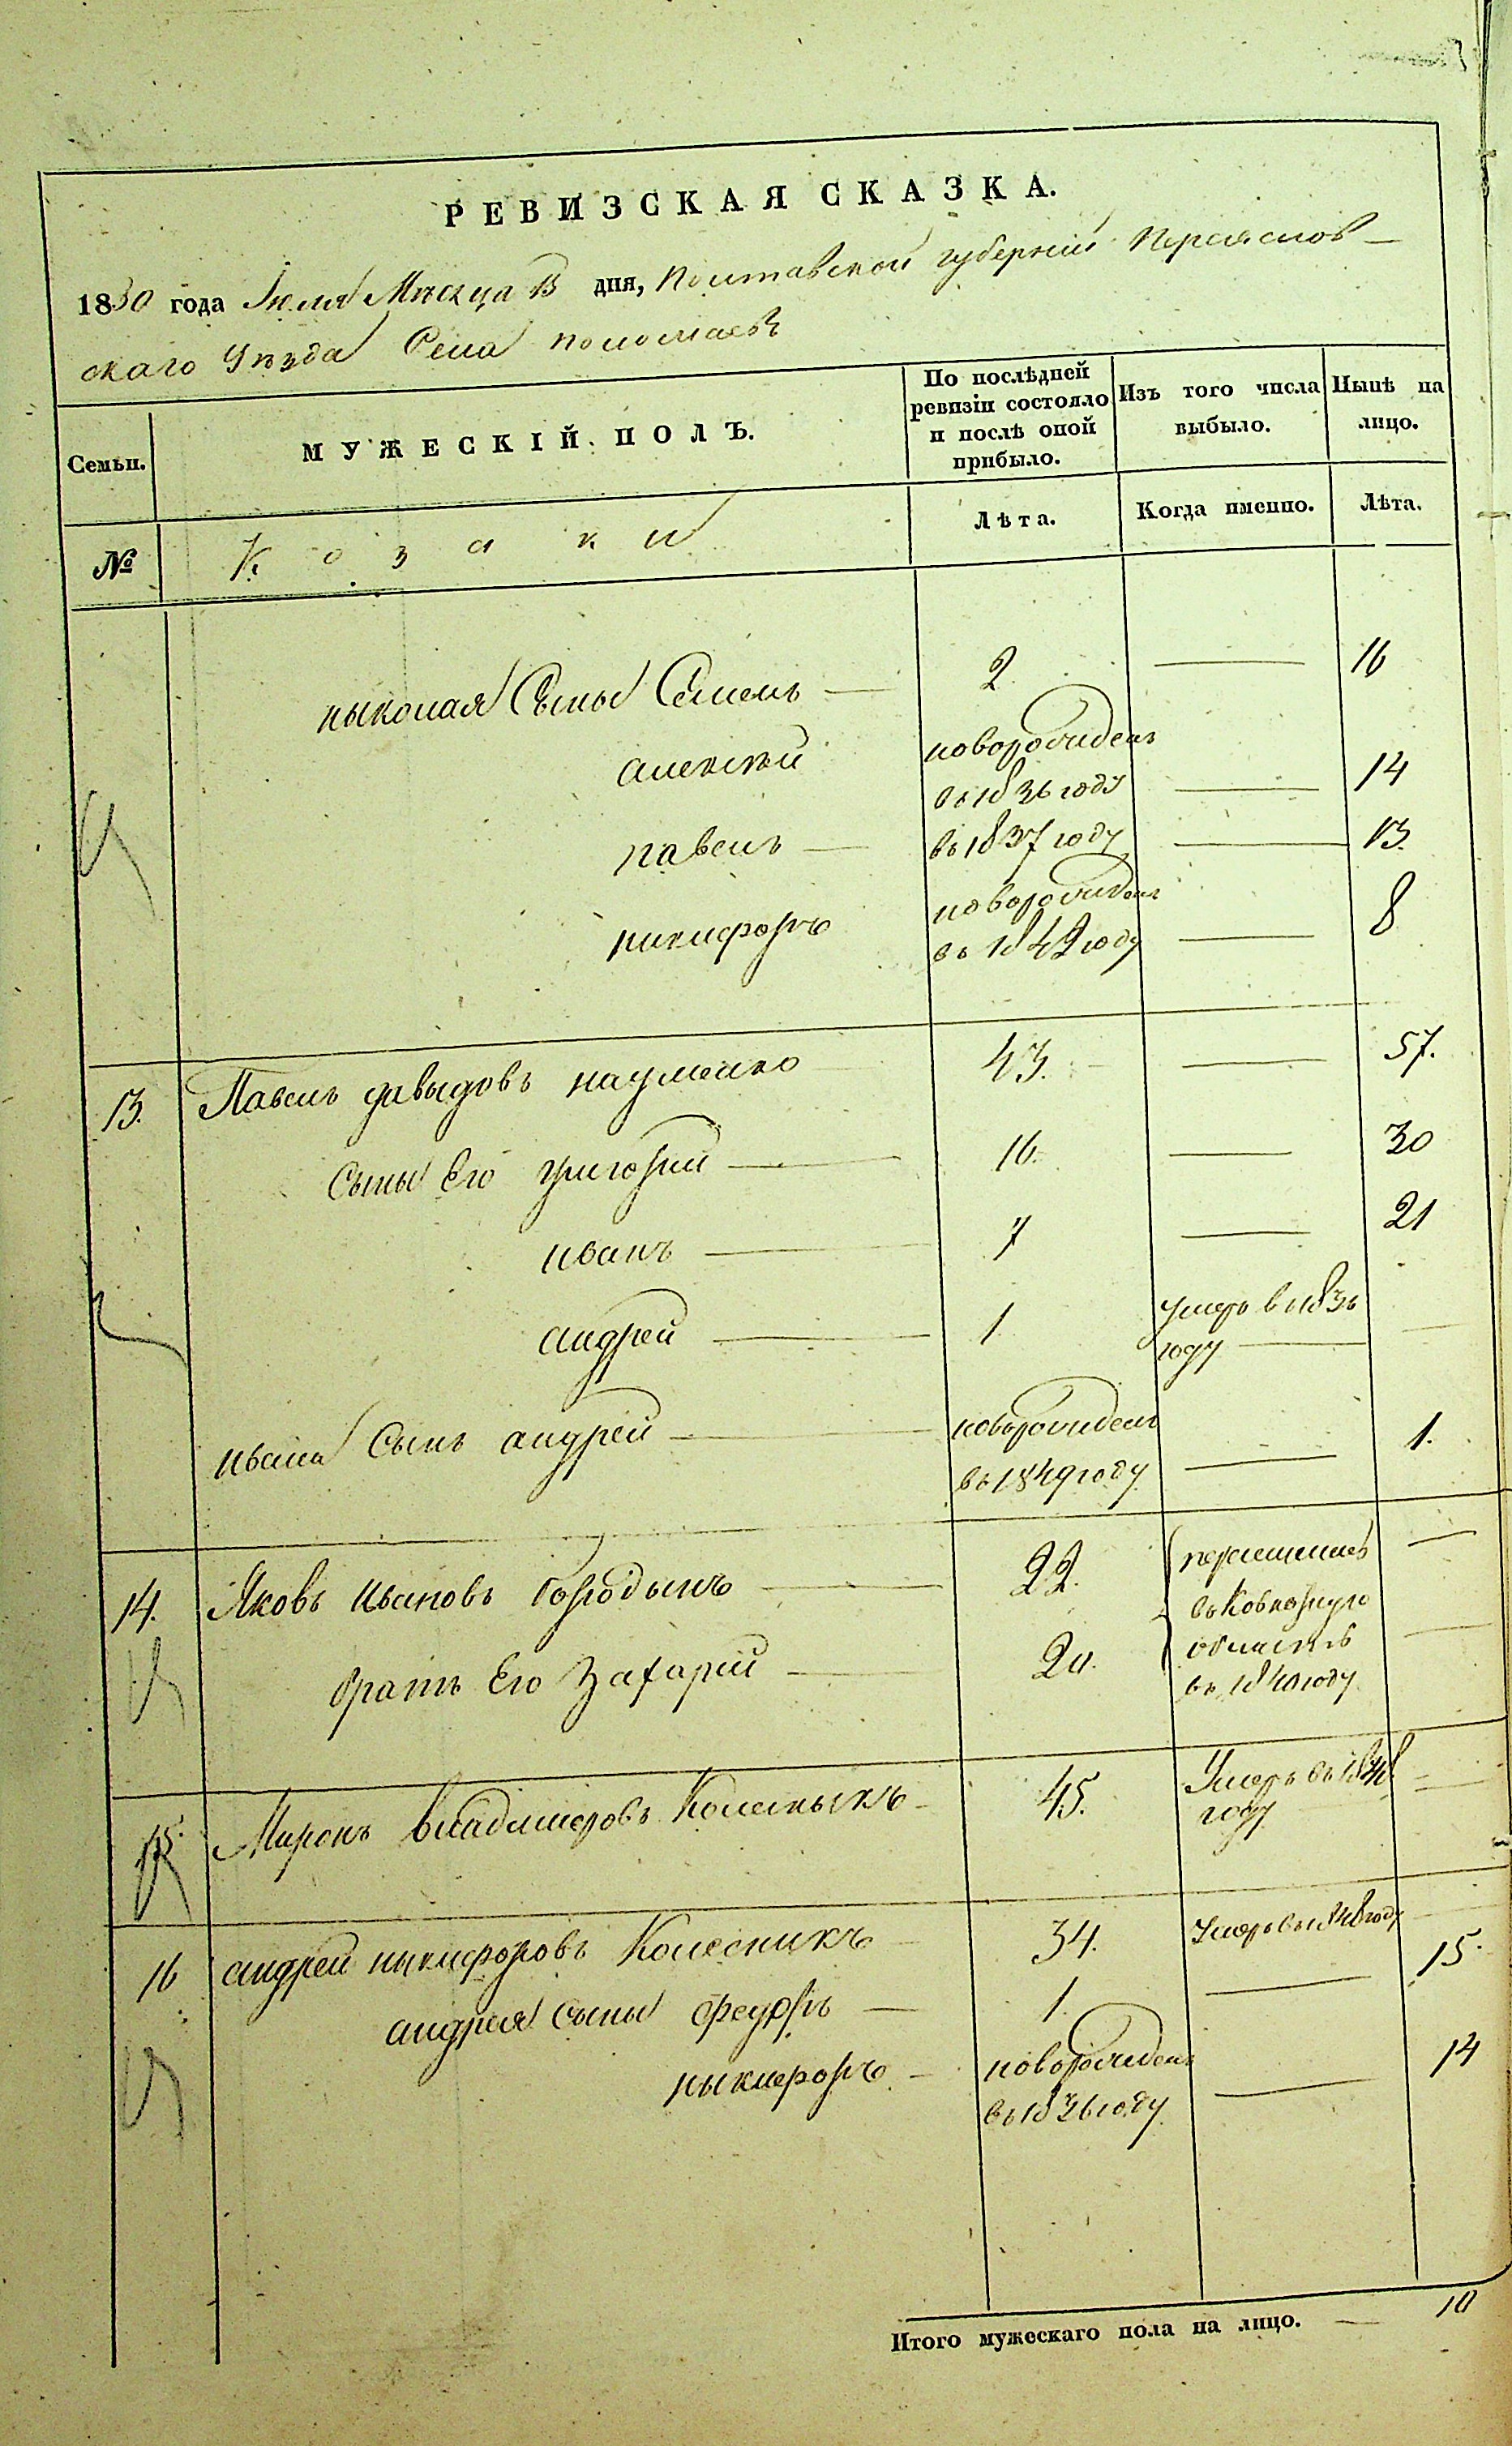 РЕВИЗСКАЯ СКАЗКА.
1850 года Июля Месяца 13 дня, Полтавской губерніи Переяслов-
скаго Уезда Села
Семьи.
МУЖЕСКІЙ ПОЛЪ.
По послѣдней ревизіи состояло и послѣ оной прибыло.
Изъ того числа выбыло.
Нынѣ на лицо.
№
Козаки
Лѣта.
Когда именно.
Лѣта.
ныколая Сыны Семенъ — 2 — 16
алексѣй новорожденъ
въ 1836 году — 14
павелъ — въ 1837 году — 13.
никифоръ новорожденъ
въ 1842 году — 8
13. Павелъ давыдовъ науменко 43. — 57.
Сыны Его григорій — 16. — 30
иванъ — 7 — 21
андрей — 1 умеръ в 1836
году —
ивана Сынъ андрей — новорожденъ
въ 1849 году — 1.
14. Яковъ ивановъ бородынъ — 22. перемещенъ —
въ Кавказкую
братъ Его Захарій — 20. область —
въ 1840 году
15. Миронъ владимеровъ Колесныкъ — 45. Умеръ въ 1848 —
году
16 андрей никифоровъ Колесникъ — 34. Умеръ въ 1848 году
андрея Сыны федоръ — 1. — 15.
ныкифоръ — новорожденъ
въ 1836 году — 14
Итого мужескаго пола на лицо. — 10